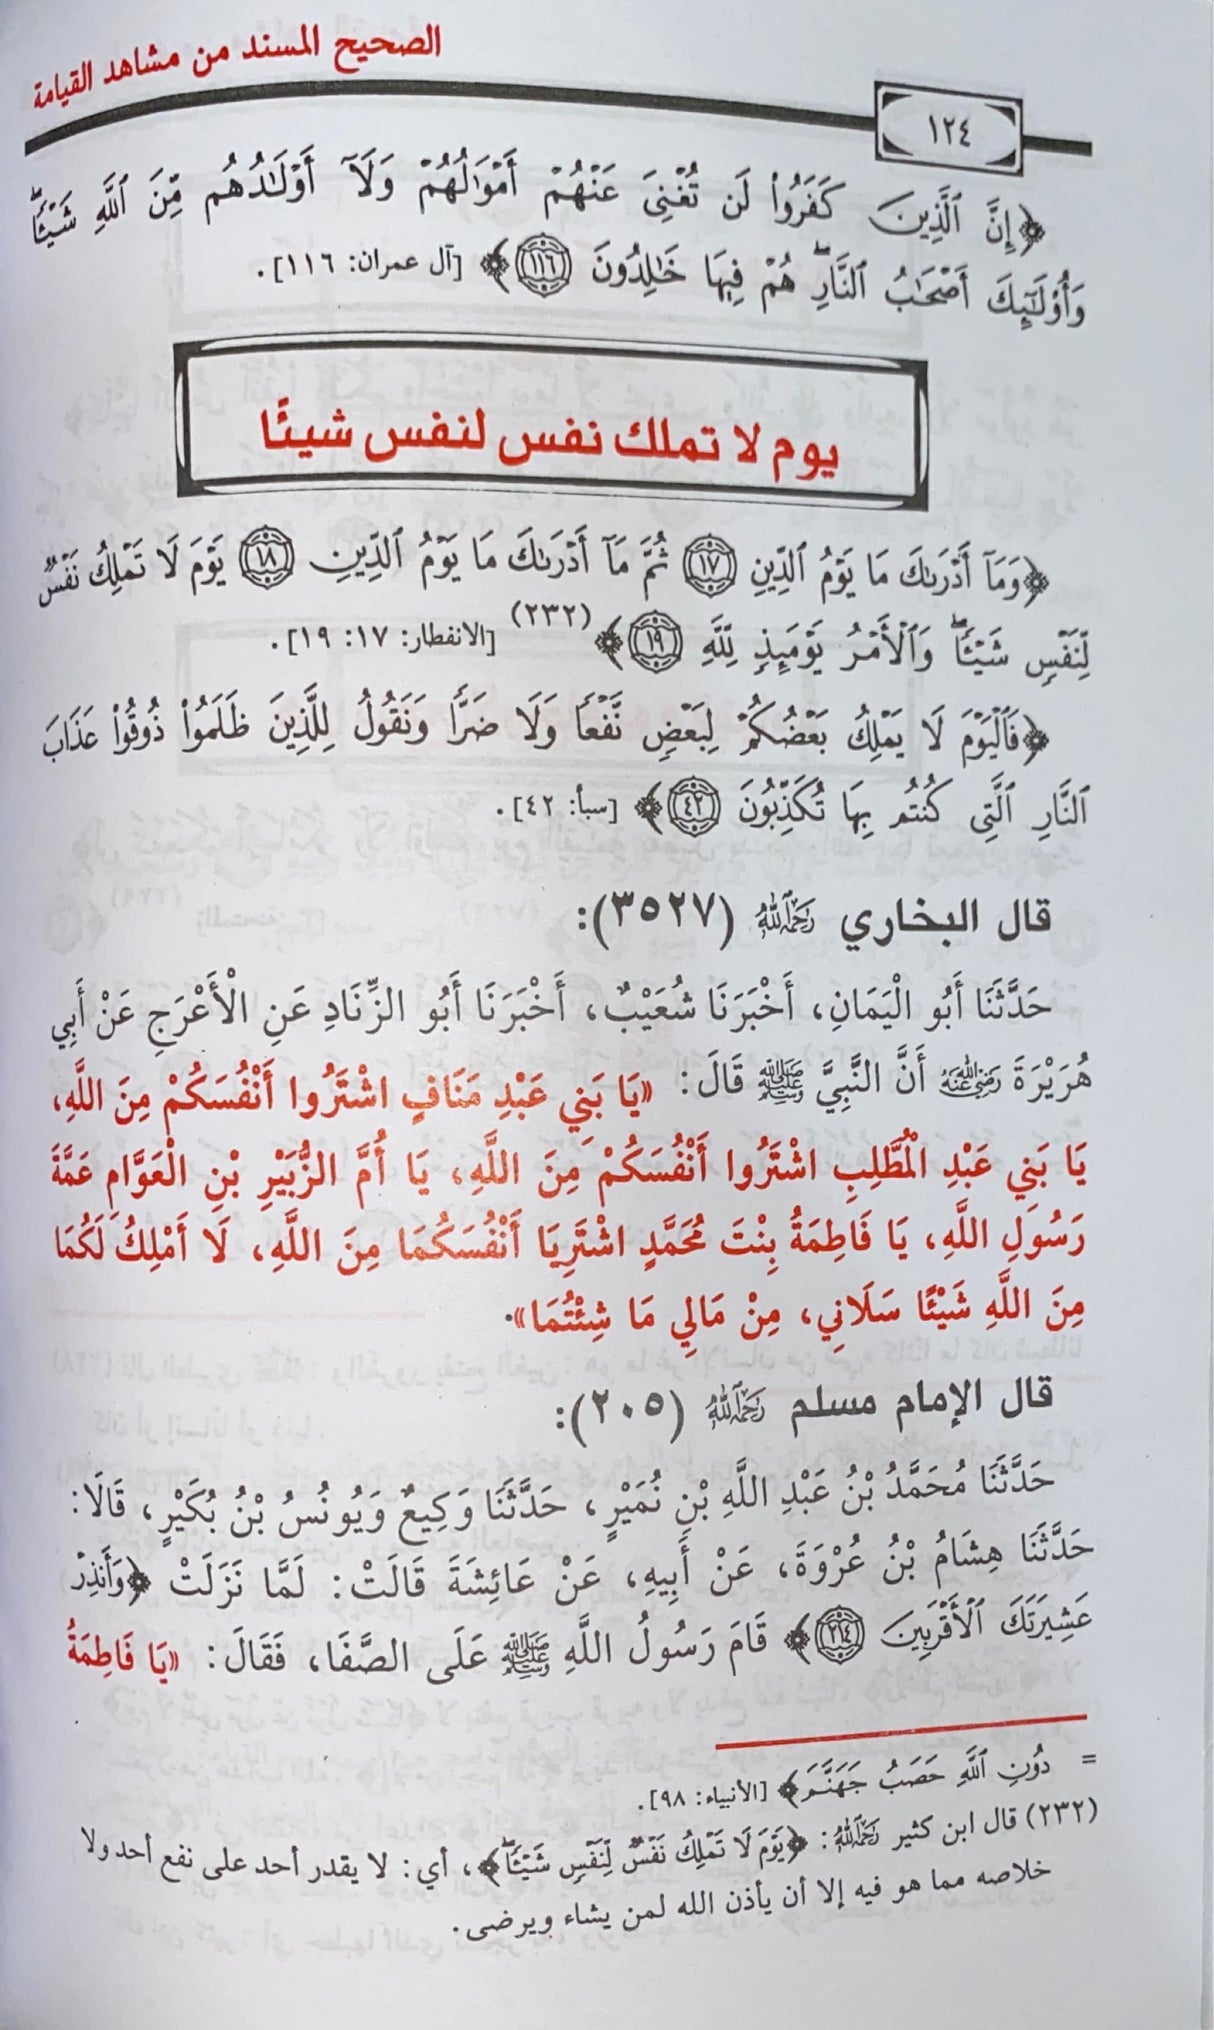 الصحيح المسند من مشاهد القيامة
١٢٤
﴿إِنَّ ٱلَّذِينَ كَفَرُوا۟ لَن تُغْنِىَ عَنْهُمْ أَمْوَٰلُهُمْ وَلَآ أَوْلَـٰدُهُم مِّنَ ٱللَّهِ شَيْـًٔا ۖ
وَأُو۟لَـٰٓئِكَ أَصْحَـٰبُ ٱلنَّارِ ۖ هُمْ فِيهَا خَـٰلِدُونَ ١١٦﴾ [آل عمران: ١١٦].
يوم لا تملك نفس لنفس شيئًا
﴿وَمَآ أَدْرَىٰكَ مَا يَوْمُ ٱلدِّينِ ١٧ ثُمَّ مَآ أَدْرَىٰكَ مَا يَوْمُ ٱلدِّينِ ١٨ يَوْمَ لَا تَمْلِكُ نَفْسٌ
لِّنَفْسٍ شَيْـًٔا ۖ وَٱلْأَمْرُ يَوْمَئِذٍ لِّلَّهِ ١٩﴾(٢٣٢) [الانفطار: ١٧: ١٩].
﴿فَٱلْيَوْمَ لَا يَمْلِكُ بَعْضُكُمْ لِبَعْضٍ نَّفْعًا وَلَا ضَرًّا وَنَقُولُ لِلَّذِينَ ظَلَمُوا۟ ذُوقُوا۟ عَذَابَ
ٱلنَّارِ ٱلَّتِى كُنتُم بِهَا تُكَذِّبُونَ ٤٢﴾ [سبأ: ٤٢].
قال البخاري رَحِمَهُ اللَّهُ (٣٥٢٧):
حَدَّثَنَا أَبُو الْيَمَانِ، أَخْبَرَنَا شُعَيْبٌ، أَخْبَرَنَا أَبُو الزِّنَادِ عَنِ الْأَعْرَجِ عَنْ أَبِي
هُرَيْرَةَ رَضِيَ اللَّهُ عَنْهُ أَنَّ النَّبِيَّ ﷺ قَالَ: «يَا بَنِي عَبْدِ مَنَافٍ اشْتَرُوا أَنْفُسَكُمْ مِنَ اللَّهِ،
يَا بَنِي عَبْدِ الْمُطَّلِبِ اشْتَرُوا أَنْفُسَكُمْ مِنَ اللَّهِ، يَا أُمَّ الزُّبَيْرِ بْنِ الْعَوَّامِ عَمَّةَ
رَسُولِ اللَّهِ، يَا فَاطِمَةُ بِنْتَ مُحَمَّدٍ اشْتَرِيَا أَنْفُسَكُمَا مِنَ اللَّهِ، لَا أَمْلِكُ لَكُمَا
مِنَ اللَّهِ شَيْئًا سَلَانِي، مِنْ مَالِي مَا شِئْتُمَا».
قال الإمام مسلم رَحِمَهُ اللَّهُ (٢٠٥):
حَدَّثَنَا مُحَمَّدُ بْنُ عَبْدِ اللَّهِ بْنِ نُمَيْرٍ، حَدَّثَنَا وَكِيعٌ وَيُونُسُ بْنُ بُكَيْرٍ، قَالَا:
حَدَّثَنَا هِشَامُ بْنُ عُرْوَةَ، عَنْ أَبِيهِ، عَنْ عَائِشَةَ قَالَتْ: لَمَّا نَزَلَتْ ﴿وَأَنذِرْ
عَشِيرَتَكَ ٱلْأَقْرَبِينَ ٢١٤﴾ قَامَ رَسُولُ اللَّهِ ﷺ عَلَى الصَّفَا، فَقَالَ: «يَا فَاطِمَةُ
= دُونِ ٱللَّهِ حَصَبُ جَهَنَّمَ﴾ [الأنبياء: ٩٨].
(٢٣٢) قال ابن كثير رَحِمَهُ اللَّهُ: ﴿يَوْمَ لَا تَمْلِكُ نَفْسٌ لِّنَفْسٍ شَيْـًٔا ۖ﴾، أي: لا يقدر أحد على نفع أحد ولا
خلاصه مما هو فيه إلا أن يأذن الله لمن يشاء ويرضى.